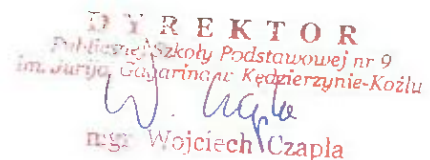 DYREKTOR
Publicznej Szkoły Podstawowej nr 9
im. Jurija Gagarina w Kędzierzynie-Koźlu
W. Czapla
mgr Wojciech Czapla